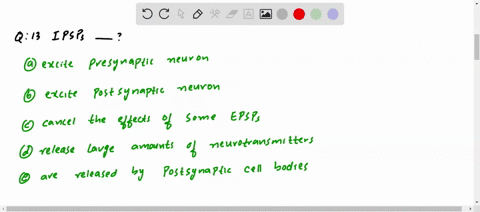 Q:13 IPSPs __ ?
(a) excite presynaptic neuron
(b) excite postsynaptic neuron
(c) cancel the effects of some EPSPs
(d) release large amounts of neurotransmitters
(e) are released by postsynaptic cell bodies